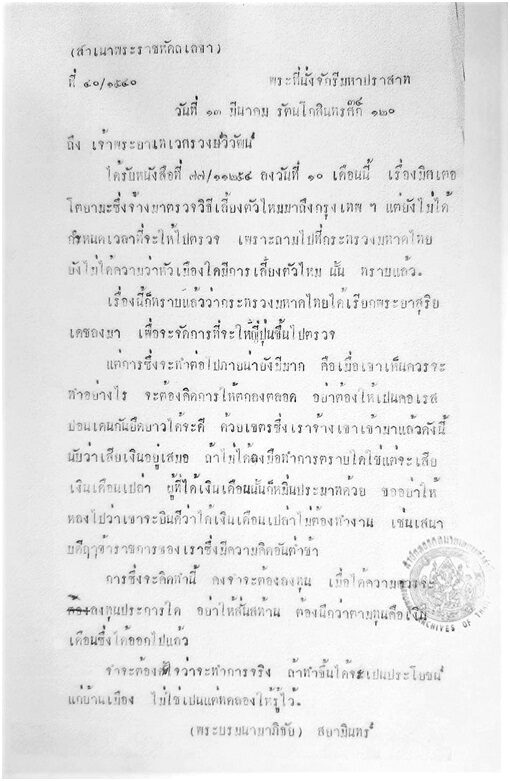 (สำเนาพระราชหัดถเลขา)
ที่ ๔๐/๑๕๔๐ พระที่นั่งจักรีมหาปราสาท
วันที่ ๑๓ มีนาคม รัตนโกสินทรศ๊ก ๑๒๐
ถึง เจ้าพระยาเทเวศรวงษ์วิวัฒน์
ได้รับหนังสือที่ ๗๗/๑๑๒๕๔ ลงวันที่ ๑๐ เดือนนี้ เรื่องมิศเตอ
โตยามะซึ่งจ้างมาตรวจวิธีเลี้ยงตัวไหมมาถึงกรุงเทพ ฯ แต่ยังไม่ได้
กำหนดเวลาที่จะให้ไปตรวจ เพราะถามไปที่กระทรวงมหาดไทย
ยังไม่ได้ความว่าหัวเมืองใดมีการเลี้ยงตัวไหม นั้น ทราบแล้ว.
เรื่องนี้ก็ทราบแล้วว่ากระทรวงมหาดไทยได้เรียกพระยาสุริย
เดชลงมา เพื่อจะจัดการที่จะให้ญี่ปุ่นขึ้นไปตรวจ
แต่การซึ่งจะทำต่อไปภายน่ายังมีมาก คือเมื่อเขาเห็นควรจะ
ทำอย่างไร จะต้องคิดการให้ตกลงตลอด อย่าต้องให้เปนคอเรส
ปอนเดนกันยืดยาวได้จะดี ด้วยเหตุซึ่งเราจ้างเขาเข้ามาแล้วดังนี้
นับว่าเสียเงินอยู่เสมอ ถ้าไม่ได้ลงมือทำการตราบใดใช่แต่จะเสีย
เงินเดือนเปล่า ผู้ที่ได้เงินเดือนนั้นก็หมิ่นประมาทด้วย ขออย่าให้
หลงไปว่าเขาจะยินดีว่าได้เงินเดือนเปล่าไม่ต้องทำงาน เช่นเสนา
บดีฤๅข้าราชการของเราซึ่งมีความคิดอันต่ำช้า
การซึ่งจะคิดทำนี้ คงจำจะต้องลงทุน เมื่อได้ความควรจะ
ต้องลงทุนประการใด อย่าให้สั่นสท้าน ต้องนึกว่าตามทุนคือเงิน
เดือนซึ่งได้ออกไปแล้ว
จำจะต้องตั้งใจว่าจะทำการจริง ถ้าทำขึ้นได้จะเปนประโยชน์
แก่บ้านเมือง ไม่ใช่เปนแต่ทดลองให้รู้ไว้.
(พระบรมนามาภิธัย) สยามินทร์